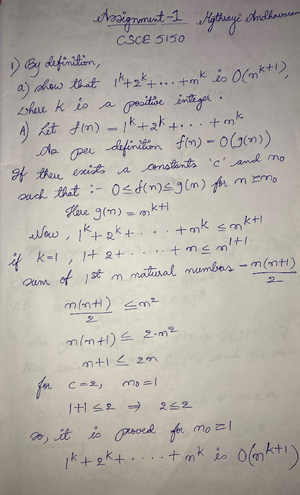 Assignment-1 Mythrayi
CSCE 5150
1) By definition,
a) show that 1^k+2^k+...+n^k is O(n^k+1),
where k is a positive integer.
A) Let f(n) = 1^k+2^k+...+n^k
As per definition f(n) = O(g(n))
If there exists a constants 'c' and n0
such that :- 0≤f(n)≤g(n) for n≥n0
Here g(n) = n^k+1
Now, 1^k+2^k+....+n^k ≤n^k+1
if k=1, 1+2+.....+n≤n^1+1
sum of 1st n natural numbers - n(n+1)/2
n(n+1)/2 ≤n^2
n(n+1)≤ 2·n^2
n+1≤ 2n
for c=2, n0=1
1+1≤2 ⇒ 2≤2
so, it is proved for n0=1
1^k+2^k+....+n^k is O(n^k+1)